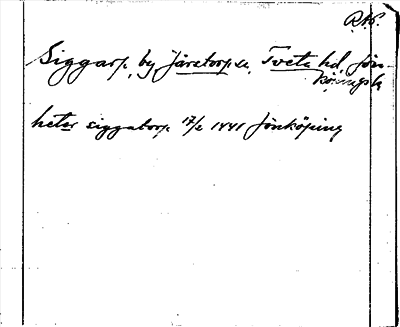 Siggarp, by, Järstorp sn, Tveta hd, Jön-
köpings l.
heter siggatorp 17/2 1441 Jönköping